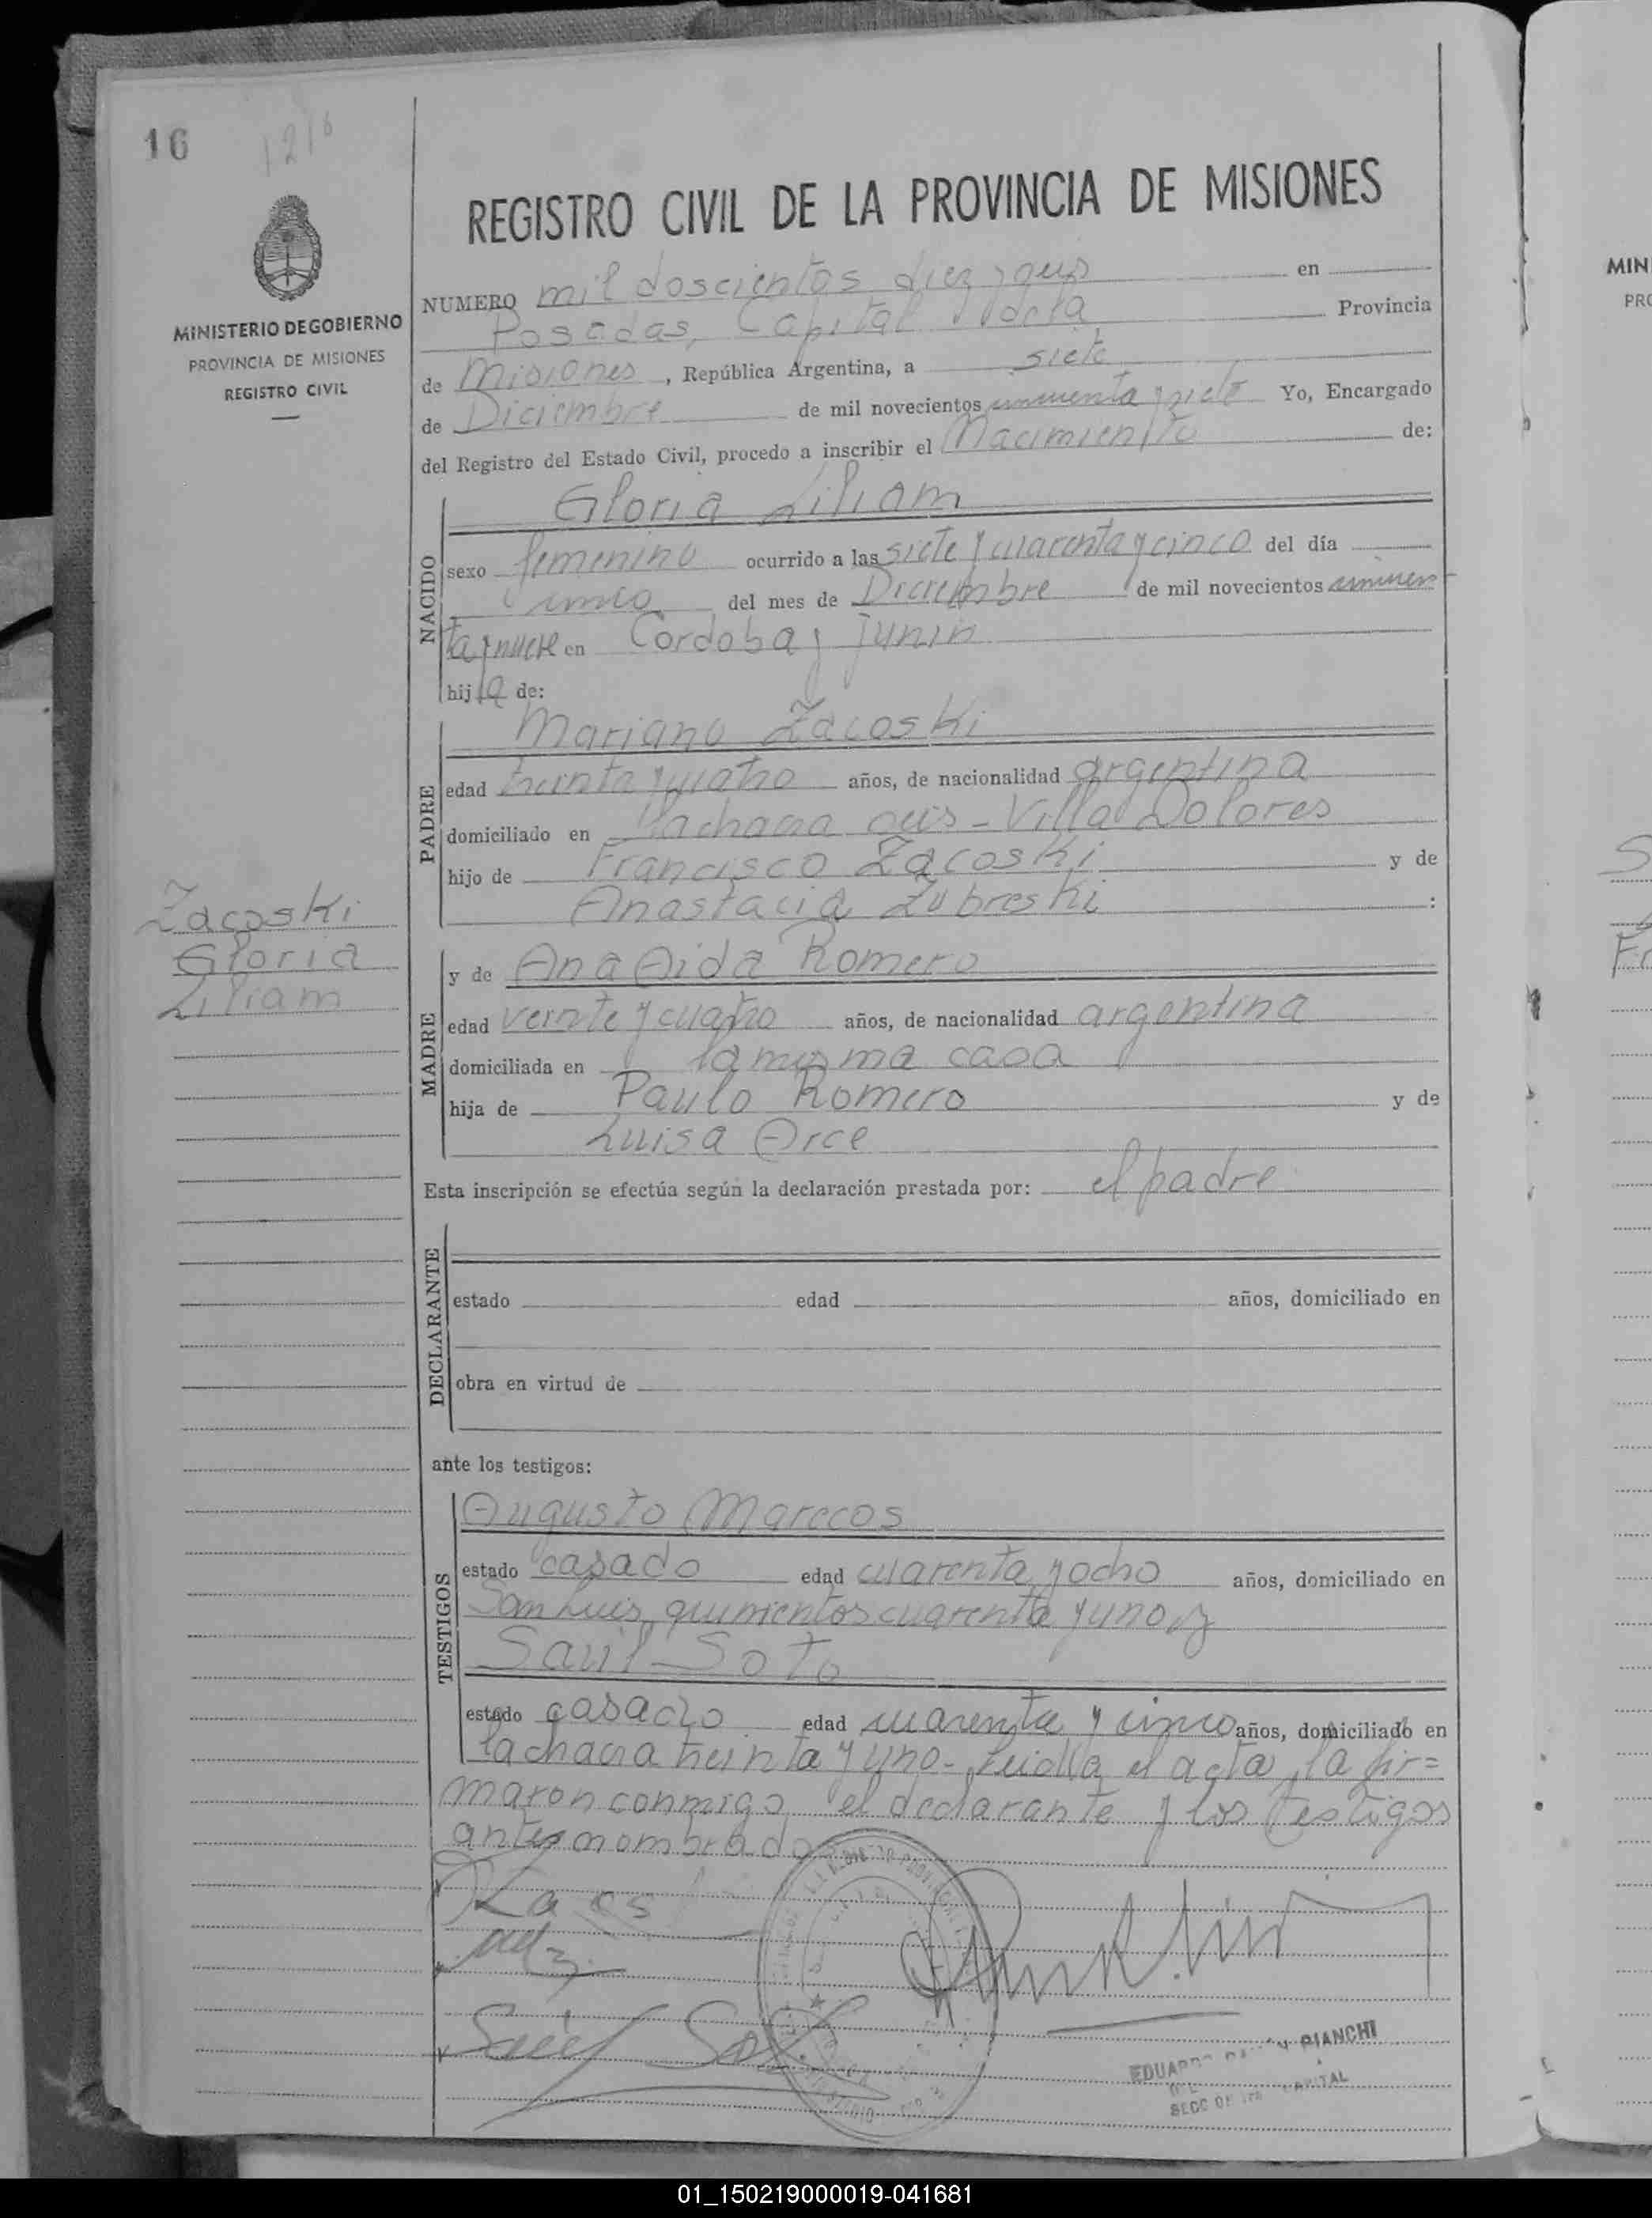 16
1216
MINISTERIO DE GOBIERNO
PROVINCIA DE MISIONES
REGISTRO CIVIL
REGISTRO CIVIL DE LA PROVINCIA DE MISIONES
NUMERO mil doscientos diez y seis en
Posadas, Capital de la Provincia
de Misiones, República Argentina, a siete
de Diciembre de mil novecientos Yo, Encargado
del Registro del Estado Civil, procedo a inscribir el Nacimiento de:
NACIDO
Gloria Liliam
sexo femenino ocurrido a las siete y cuarenta y cinco del día
cinco del mes de Diciembre de mil novecientos cincuen
ta y nueve en Cordoba y Junin
hija de:
PADRE
Mariano Zacoski
edad treinta y cuatro años, de nacionalidad argentina
domiciliado en la chacra seis - Villa Dolores
hijo de Francisco Zacoski y de
Anastacia Zubreski :
Zacoski
Gloria
Liliam
MADRE
y de Ana Aida Romero
edad veinte y cuatro años, de nacionalidad argentina
domiciliada en la misma casa
hija de Paulo Romero y de
Luisa Orce
Esta inscripción se efectúa según la declaración prestada por: el padre
DECLARANTE
estado edad años, domiciliado en
obra en virtud de
ante los testigos:
TESTIGOS
Augusto Marecos
estado casado edad cuarenta y ocho años, domiciliado en
San Luis quinientos cuarenta y uno y
Saúl Soto
estado casado edad cuarenta y cinco años, domiciliado en
la chacra treinta y uno - Leida el acta, la fir=
maron conmigo el declarante y los testigos
antes nombrados
Saúl Soto
EDUARDO BIANCHI
SECC CAPITAL
MIN
PRO
01_150219000019-041681